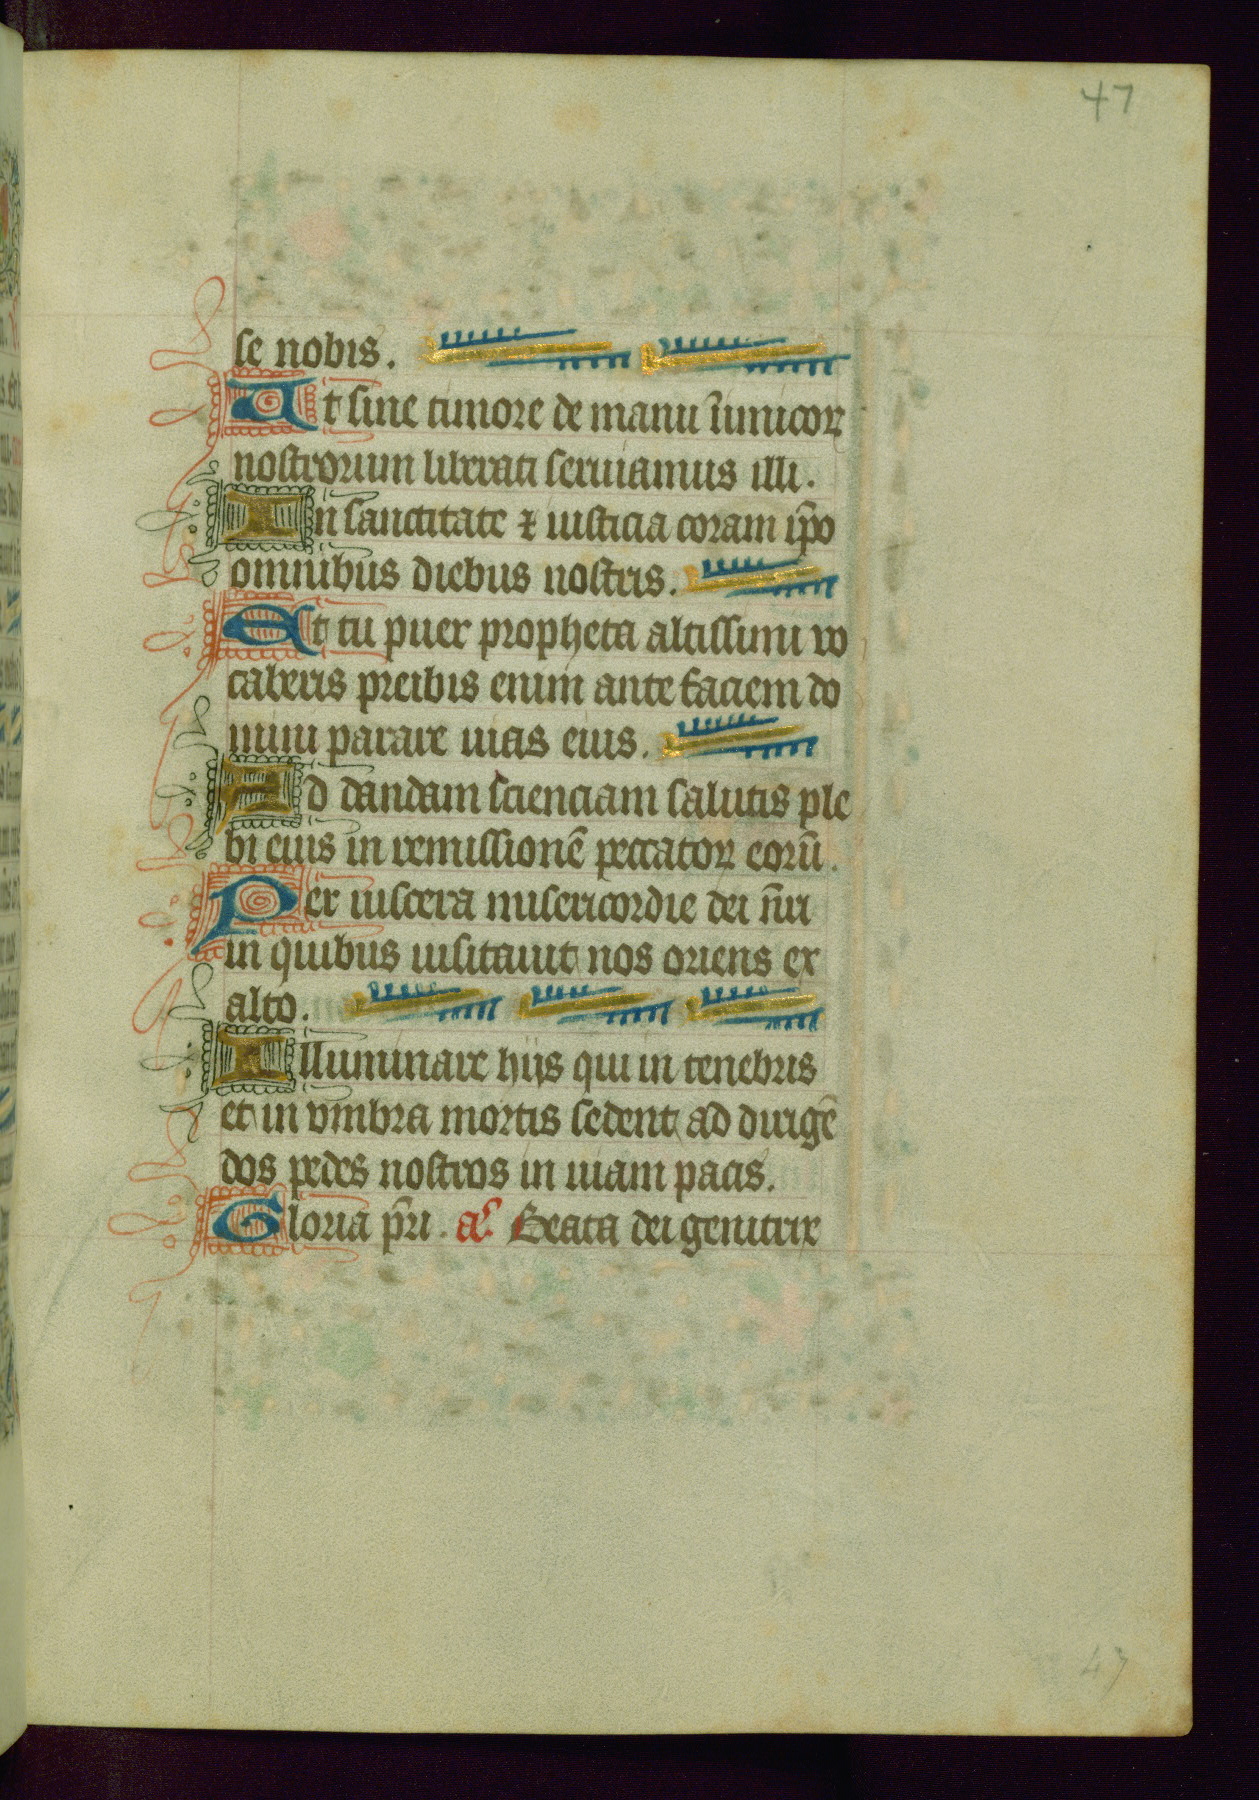 47
se nobis.
At sine timore de manu īimicoꝝ
nostrorum liberati seruiamus illi.
In sanctitate ⁊ iusticia coram ip̄o
omnibus diebus nostris.
Et tu puer propheta altissimi vo
caberis preibis enim ante faciem do
mini parare uias eius.
Ad dandam scienciam salutis ple
bi eius in remissionē peccatoꝝ eorū.
Per uiscera misericordie dei nr̄i
in quibus uisitauit nos oriens ex
alto.
Illuminare hijs qui in tenebris
et in vmbra mortis sedent ad dirigē
dos pedes nostros in uiam pacis.
Gloria pr̄i. añ. Beata dei genitrix
47